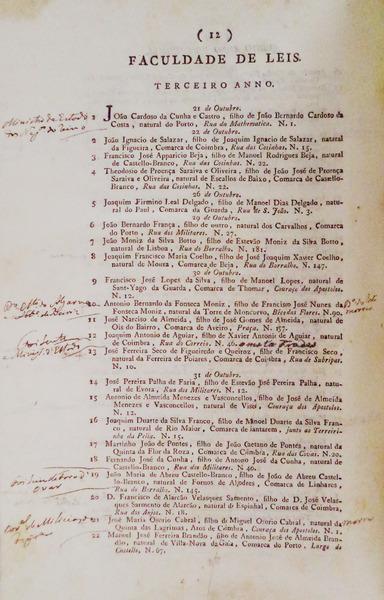 ( 12 )
FACULDADE DE LEIS.
TERCEIRO ANNO.
21 de Outubro.
1 JOão Cardoso da Cunha e Castro , filho de João Bernardo Cardoso da
Costa , natural do Porto , Rua do Mathematica. N. 1.
22 de Outubro.
2 João Ignacio de Salazar , filho de Joaquim Ignacio de Salazar , natural
da Figueira , Comarca de Coimbra , Rua das Cosinhas. N. 15.
3 Francisco José Apparicio Beja , filho de Manuel Rodrigues Beja , natural
de Castello-Branco , Rua das Cosinhas. N. 22.
4 Theodosio de Proença Saraiva e Oliveira , filho de João José de Proença
Saraiva e Oliveira , natural de Escallos de Baixo , Comarca de Castello-
Branco , Rua das Cosinhas. N. 22.
26 de Outubro.
5 Joaquim Firmino Leal Delgado , filho de Manoel Dias Delgado , natu-
ral do Paul , Comarca da Guarda , Rua de S. João. N. 3.
29 de Outubro.
6 João Bernardo França , filho de outro , natural dos Carvalhos , Comarca
do Porto , Rua dos Militares. N. 27.
7 João Moniz da Silva Botto , filho de Estevão Moniz da Silva Botto ,
natural de Lisboa , Rua do Borralho. N. 181.
8 Joaquim Francisco Maria Coelho , filho de José Joaquim Xavier Coelho ,
natural de Moura , Comarca de Beja , Rua do Borralho. N. 147.
30 de Outubro.
9 Francisco José Lopes da Silva , filho de Manoel Lopes , natural de
Sant-Yago da Guarda , Comarca de Thomar , Couraça dos Apostolos.
N. 12.
10 Antonio Bernardo da Fonseca Moniz , filho de Francisco José Nunes da
Fonseca Moniz , natural da Torre de Moncorvo , Bécodas Flores. N. 90.
11 José Narciso de Almeida , filho de José Gomes de Almeida , natural de
Ois do Bairro , Comarca de Aveiro , Praça. N. 157.
12 Joaquim Antonio de Aguiar , filho de Xavier Antonio de Aguiar , natural
de Coimbra , Rua do Correio. N. 40.
13 José Ferreira Seco de Figueiredo e Queiroz , filho de Francisco Seco ,
natural da Ferreira de Poiares , Comarca de Coimbra , Rua de Subripas.
N. 10.
31 de Outubro.
14 José Pereira Palha de Faria , filho de Estevão José Pereira Palha , natu-
ral de Evora , Rua dos Militares. N. 12.
15 Antonio de Almeida Menezes e Vasconcellos , filho de José de Almeida
Menezes e Vasconcellos , natural de Viseu , Couraça dos Apostolos.
N. 12.
16 Joaquim Duarte da Silva Franco , filho de Manoel Duarte da Silva Fran-
co , natural de Rio Maior , Comarca de Santarem , junto ao Terreiri-
nho da Pella. N. 15.
17 Martinho João de Pontes , filho de João Caetano de Pontes , natural da
Quinta da Flor da Roza , Comarca de Coimbra , Rua das Covas. N. 20.
18 Fernando José da Cunha , filho de Antonio José da Cunha , natural de
Castello-Branco , Rua dos Militares. N. 40.
19 João Maria de Abreu Castello-Branco , filho de João de Abreu Castel-
lo-Branco , natural de Fornos de Algodres , Comarca de Linhares ,
Rua do Borralho. N. 145.
20 D. Francisco de Alarcão Velasques Sarmento , filho de D. José Velas-
ques Sarmento de Alarcão , natural de Espinhal , Comarca de Coimbra ,
Rua dos Anjos. N. 18.
21 José Maria Ozorio Cabral , filho de Miguel Ozorio Cabral , natural da
Quinta das Lagrimas , Aros de Coimbra , Couraça dos Apostolos. N. 1.
22 Manoel José Ferreira Brandão , filho de Antonio José de Almeida Bran-
dão , natural de Villa-Nova da Gaia , Comarca do Porto , Largo do
Castello. N. 67.